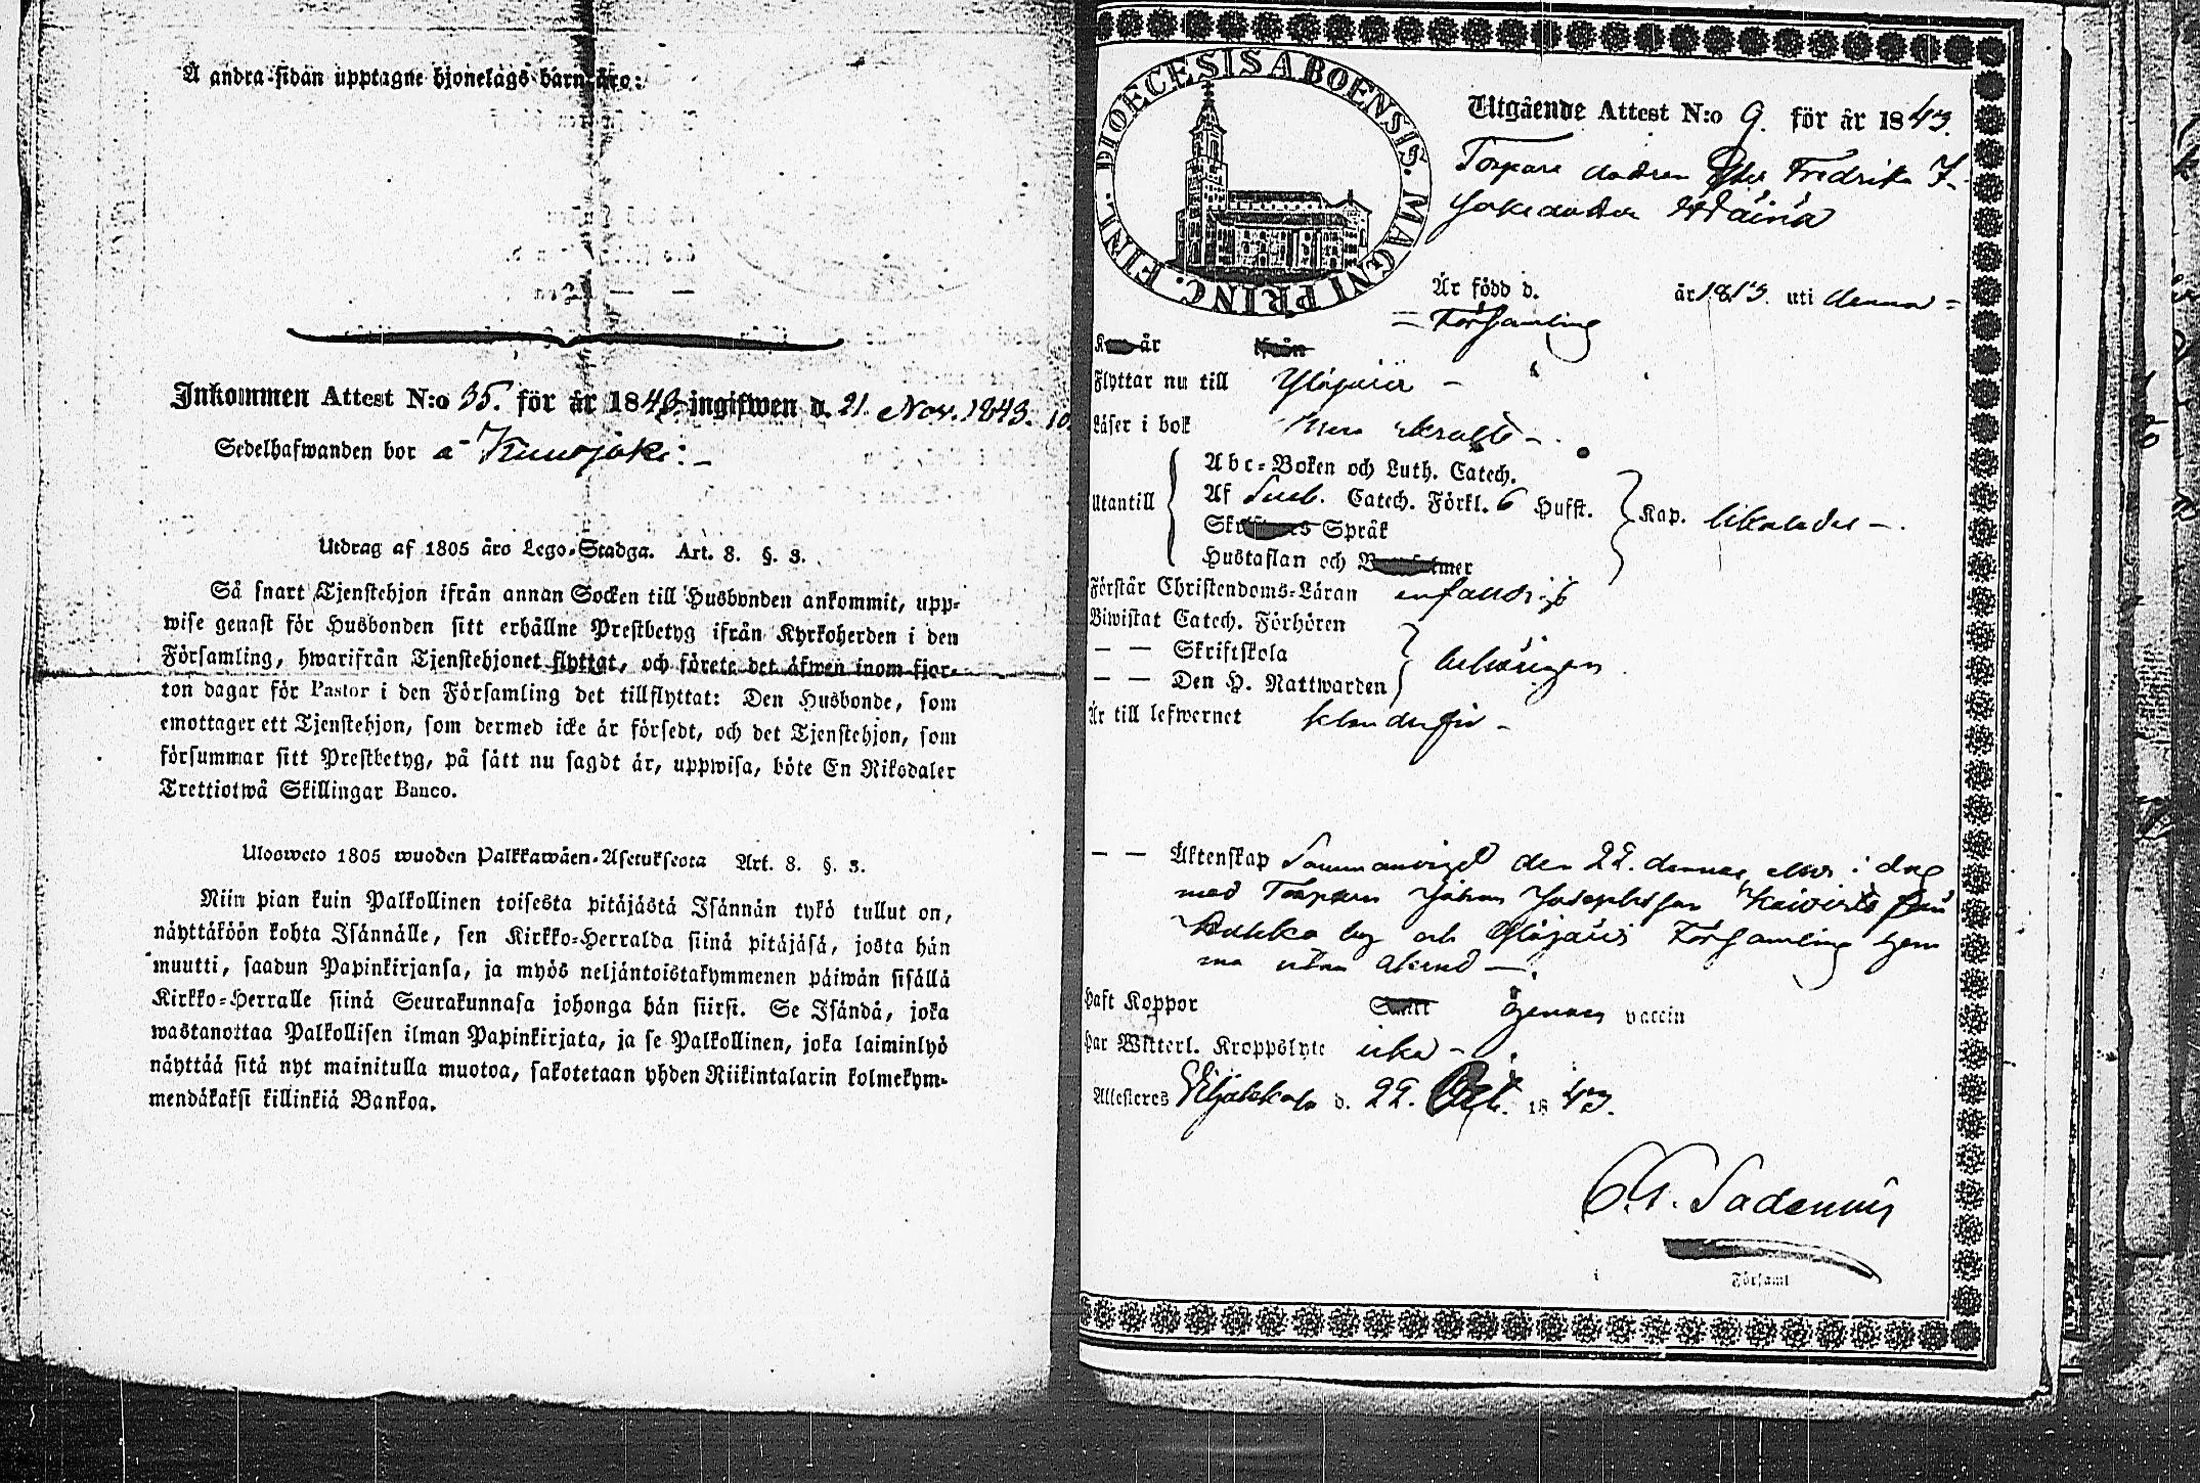 Å andra sidan upptagne hjonelags barn äro:
Inkommen Attest N:o 35. för år 1843 ingifwen d. 21. Nov. 1843.
Sedelhafwanden bor å
Utdrag af 1805 års Lego-Stadga. Art. 8. §. 3.
Så snart Tjenstehjon ifrån annan Socken till Husbonden ankommit, upp-
wise genast för Husbonden sitt erhållne Prestbetyg ifrån Kyrkoherden i den
Församling, hwarifrån Tjenstehjonet flyttat, och förete det äfwen inom fjor-
ton dagar för Pastor i den Församling det tillflyttat: Den Husbonde, som
emottager ett Tjenstehjon, som dermed icke är försedt, och det Tjenstehjon, som
försummar sitt Prestbetyg, på sätt nu sagdt är, uppwisa, böte En Riksdaler
Trettiotwå Skillingar Banco.
Ulosweto 1805 wuoden Palkkawäen-Asetuksesta Art. 8. §. 3.
Niin pian kuin Palkollinen toisesta pitäjästä Isännän tykö tullut on,
näyttäköön kohta Isännälle, sen Kirkko-Herralda siinä pitäjäsä, josta hän
muutti, saadun Papinkirjansa, ja myös neljäntoistakymmenen päiwän sisällä
Kirkko-Herralle siinä Seurakunnasa johonga hän siirsi. Se Isändä, joka
wastanottaa Palkollisen ilman Papinkirjata, ja se Palkollinen, joka laiminlyö
näyttää sitä nyt mainitulla muotoa, sakotetaan yhden Riikintalarin kolmekym-
mendäkaksi killinkiä Bankoa.
DIOECESIS ABOENSIS. MAGNI PRINC. FINL.
Utgående Attest N:o 9. för år 1843.
Torpare dottren Fredrika
Är född d. år 1813. uti denna
Församling
är
Flyttar nu till Ylöjärvi
Läser i bok
Utantill
Abc-Boken och Luth. Catech.
Af Sveb. Catech. Förkl. 6 Hufst.
Språk
Hustaflan och
Kap. likaledes
Förstår Christendoms-Läran enfaldigt
Biwistat Catech. Förhören
— — Skriftskola
— — Den H. Nattwarden
behörigen
Är till lefwernet klanderfri
— — Äktenskap Sammanvigd den 22. dennes, eller i dag
med Torparen Johan Josephsson från
by och Ylöjärvi Församling hem
ma
Haft Koppor genom vaccin
Har Witterl. Kroppslyte icke
Attesteres Viljakkala d. 22. Oct. 1843.
Sadenius
Församl